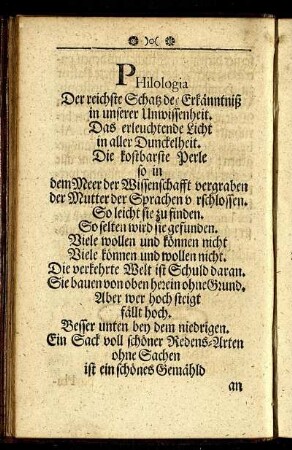 )o(
PHilologia
Der reichste Schatz der Erkänntniß
in unserer Unwissenheit.
Das erleuchtende Licht
in aller Dunckelheit.
Die kostbarste Perle
so in
dem Meer der Wissenschafft vergraben
der Mutter der Sprachen v rschlossen.
So leicht sie zu finden.
So selten wird sie gefunden.
Viele wollen und können nicht
Viele können und wollen nicht.
Die verkehrte Welt ist Schuld daran.
Sie bauen von oben herein ohne Grund.
Aber wer hoch steigt
fällt hoch.
Besser unten bey dem niedrigen.
Ein Sack voll schöner Redens-Arten
ohne Sachen
ist ein schönes Gemähld
an